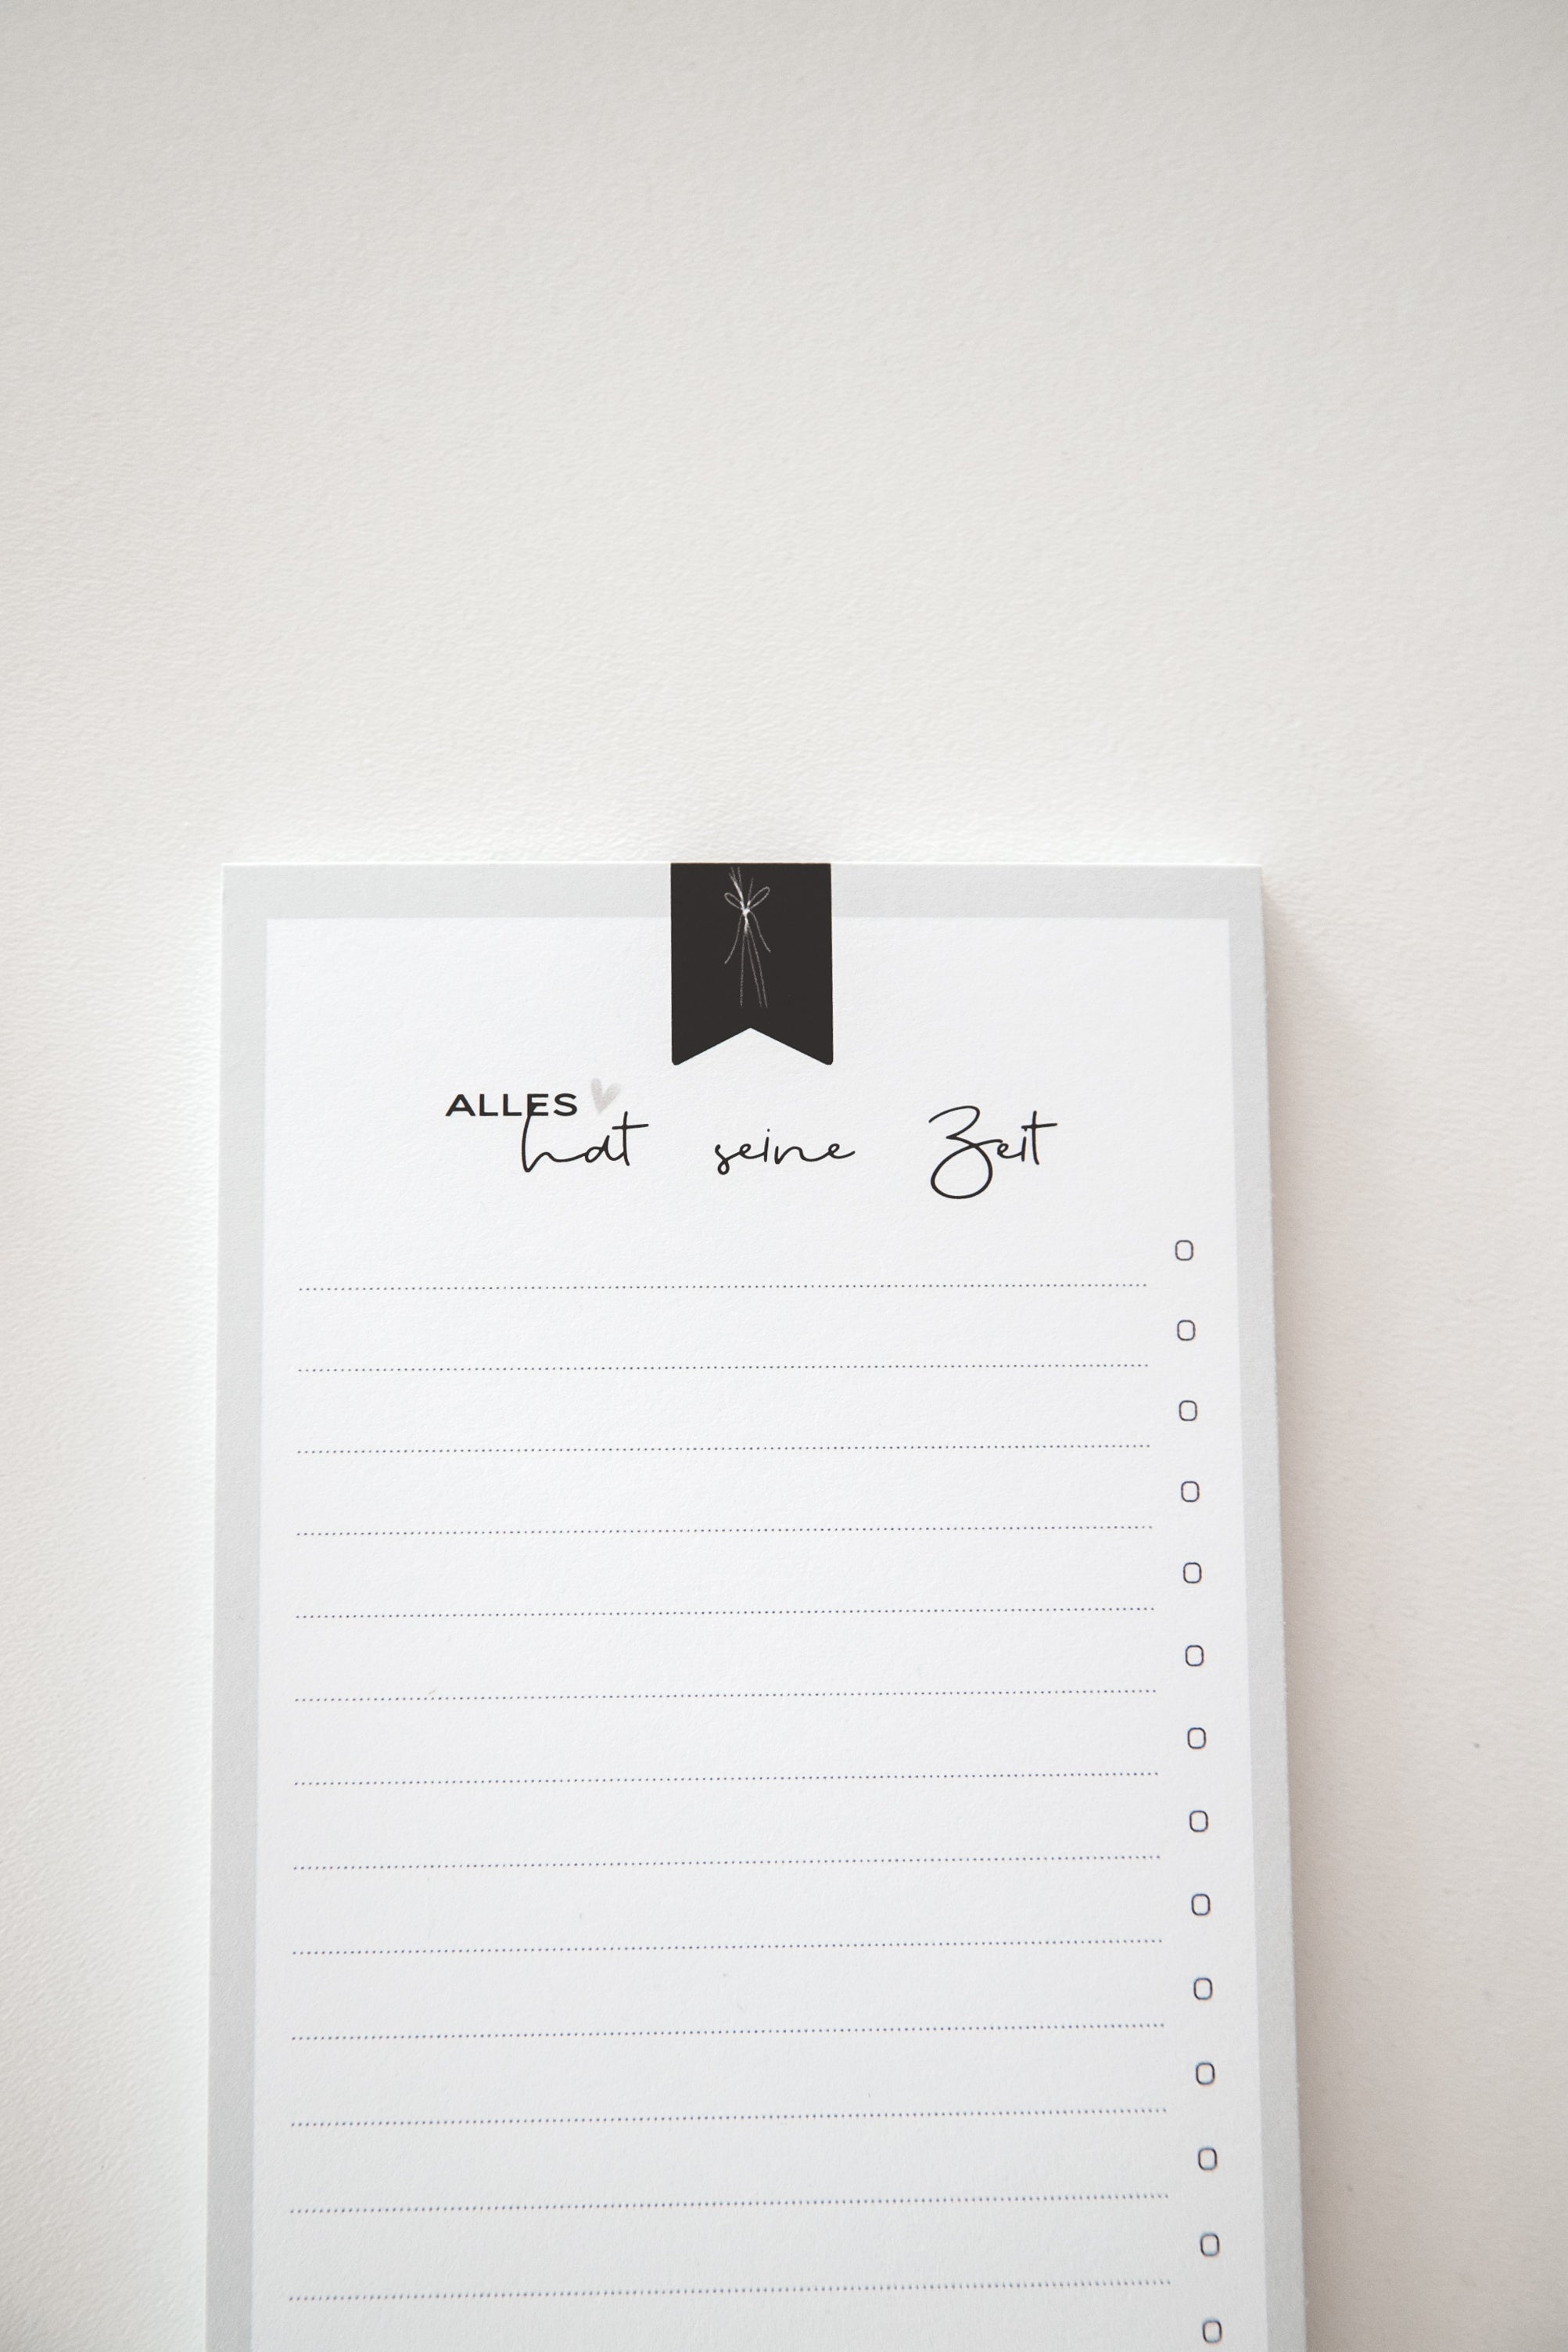 ALLES
hat seine Zeit